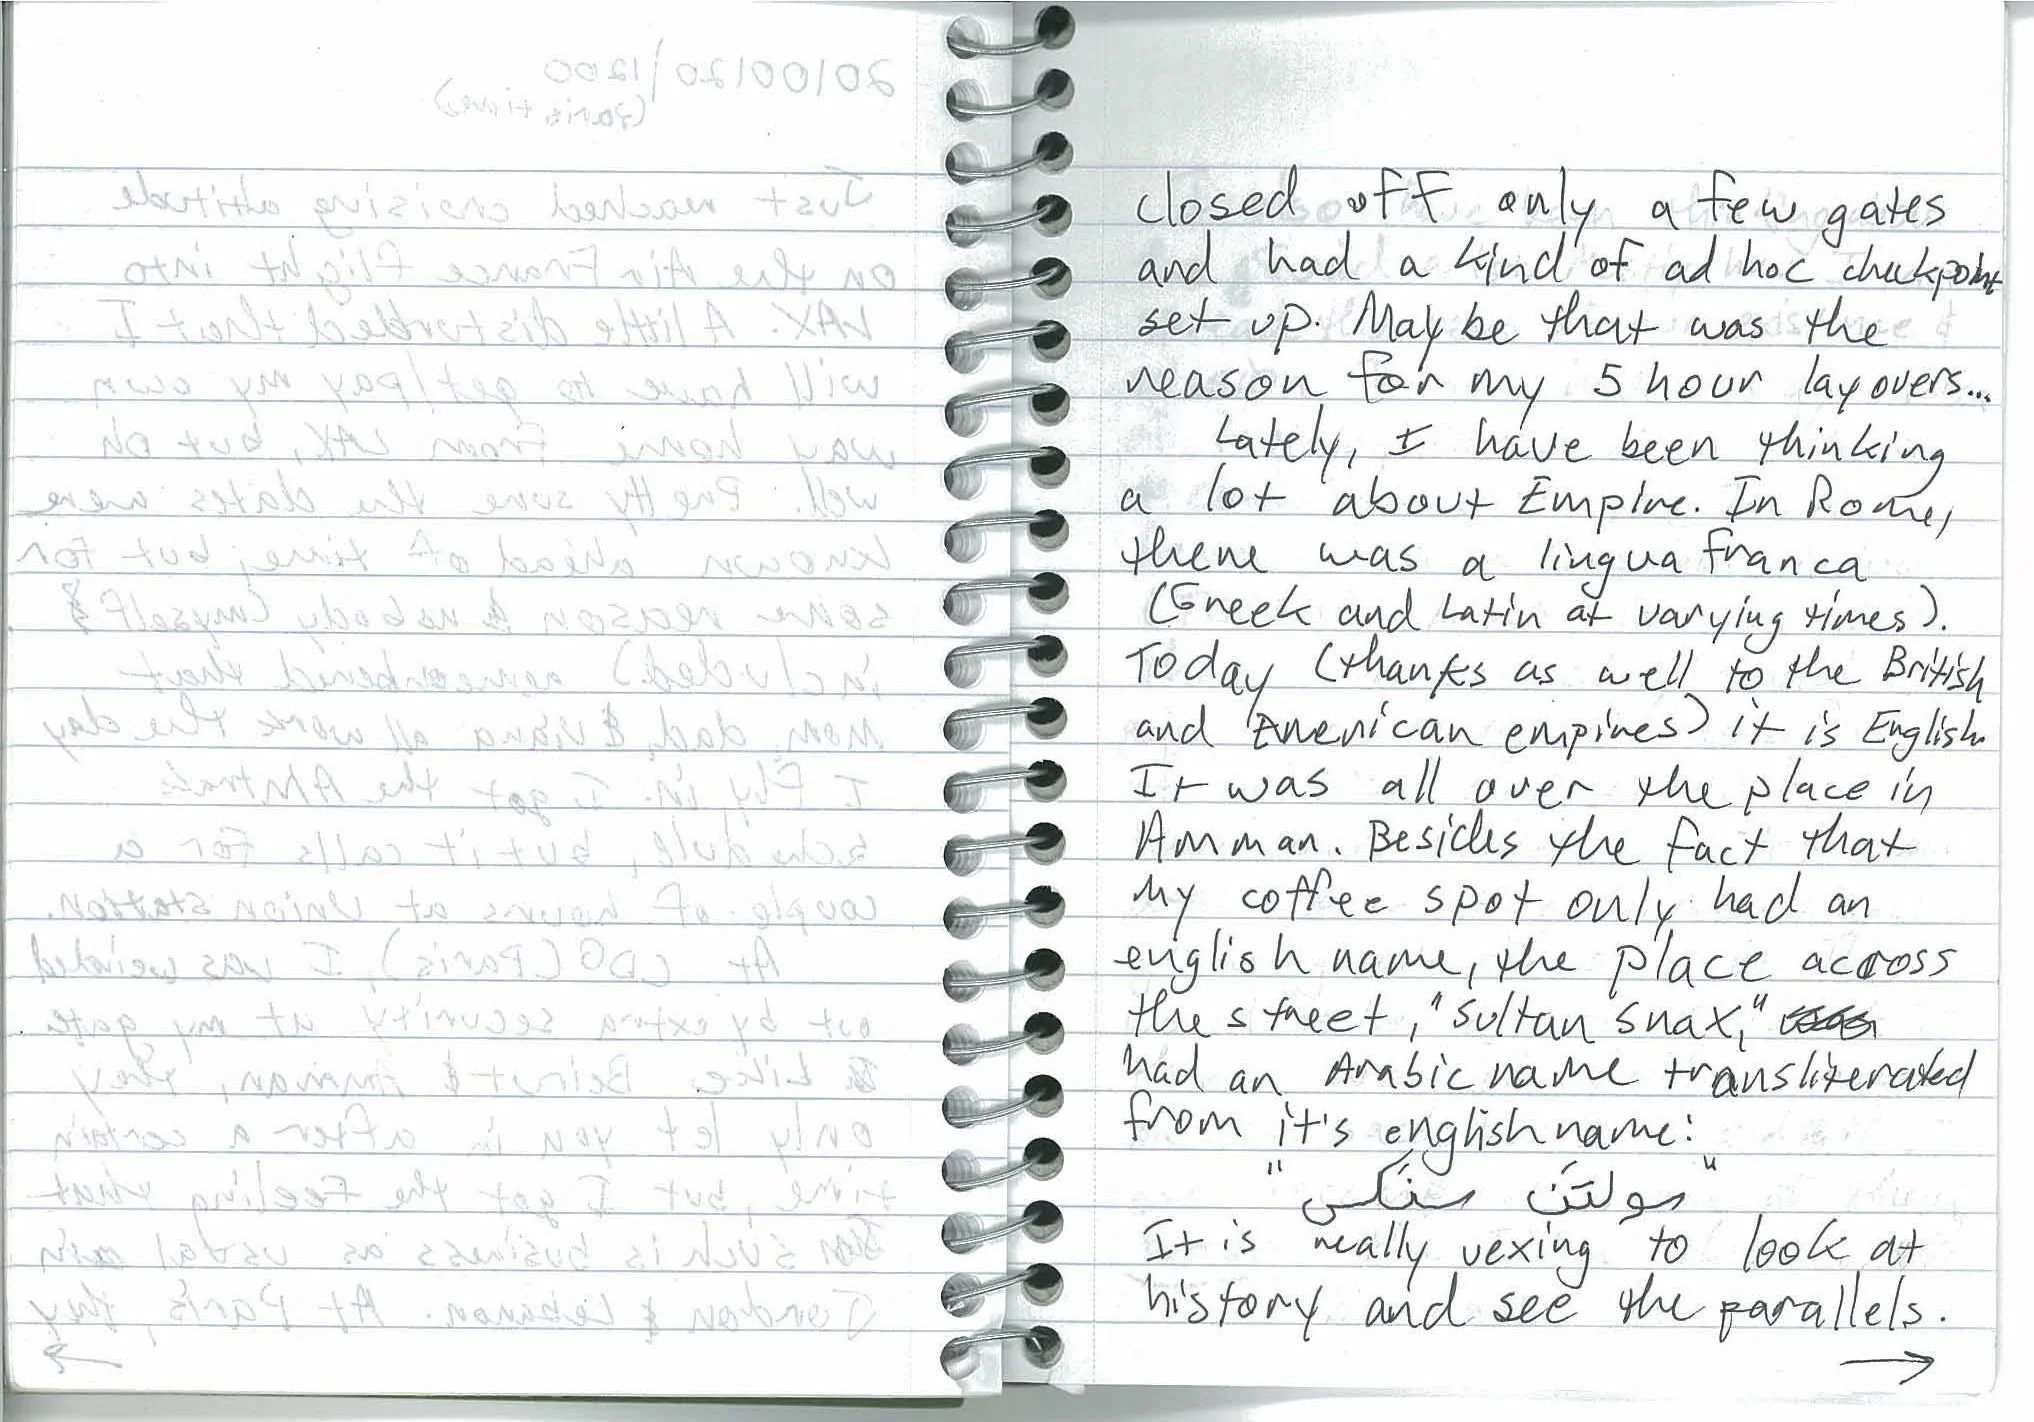 20100120/1200
(Paris time)
Just reached crusing altitude
on the Air France flight into
LAX. A little disturbed that I
will have to get/pay my own
way home from LAX, but oh
well. Pretty sure the dates were
known ahead of time, but for
some reason nobody (myself
included) remembered that
mom, dad, & all work the day
I fly in. I got the Amtrak
schedule, but it calls for a
couple of hours at Union Station.
At CDG (Paris), I was weirded
out by extra security at my gate
Like Beirut & Amman, they
only let you in after a certain
time, but I got the feeling that
such is business as usual in
Jordan & Lebanon. At Paris, they
→
closed off only a few gates
and had a kind of ad hoc checkpoint
set up. Maybe that was the
reason for my 5 hour layovers...
Lately, I have been thinking
a lot about Empire. In Rome,
there was a lingua franca
(Greek and Latin at varying times).
Today (thanks as well to the British
and American empires) it is English.
It was all over the place in
Amman. Besides the fact that
my coffee spot only had an
english name, the place across
the street, "Sultan Snax,"
had an Arabic name transliterated
from it's english name:
"سولتَن سنَكس"
It is really vexing to look at
history and see the parallels.
→